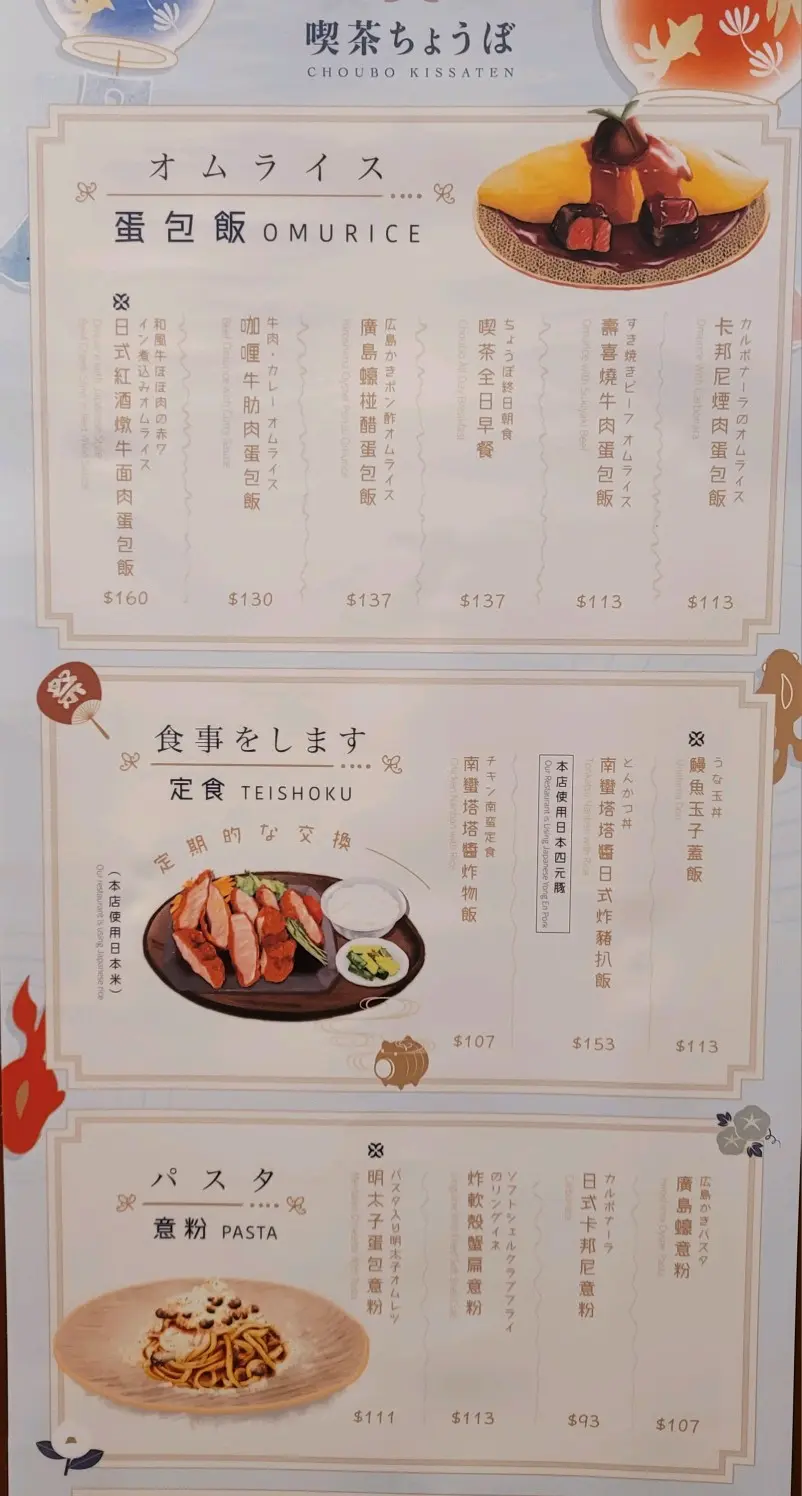 喫茶ちょうぼ
CHOUBO KISSATEN
オムライス
蛋包飯 OMURICE
カルボナーラのオムライス
卡邦尼煙肉蛋包飯
Omurice With Carbonara
$113
すき焼きビーフ オムライス
壽喜燒牛肉蛋包飯
Omurice with Sukiyaki Beef
$113
ちょうぼ終日朝食
喫茶全日早餐
Choubo All Day Breakfast
$137
広島かきポン酢オムライス
廣島蠔椪醋蛋包飯
$137
牛肉・カレー オムライス
咖喱牛肋肉蛋包飯
Beef Omurice with Curry Sauce
$130
和風牛ほほ肉の赤ワ
イン煮込みオムライス
日式紅酒燉牛面肉蛋包飯
$160
祭
食事をします
定食 TEISHOKU
定期的な交換
(本店使用日本米)
Our restaurant is using Japanese rice
うな玉丼
鰻魚玉子蓋飯
$113
とんかつ丼
南蠻塔塔醬日式炸豬扒飯
$153
本店使用日本四元豚
Our Restaurant is Using Japanese Yong En Pork
チキン南蛮定食
南蠻塔塔醬炸物飯
$107
パスタ
意粉 PASTA
広島かきパスタ
廣島蠔意粉
$107
カルボナーラ
日式卡邦尼意粉
Carbonara
$93
ソフトシェルクラブフライ
のリングイネ
炸軟殼蟹扁意粉
$113
パスタ入り明太子オムレツ
明太子蛋包意粉
$111